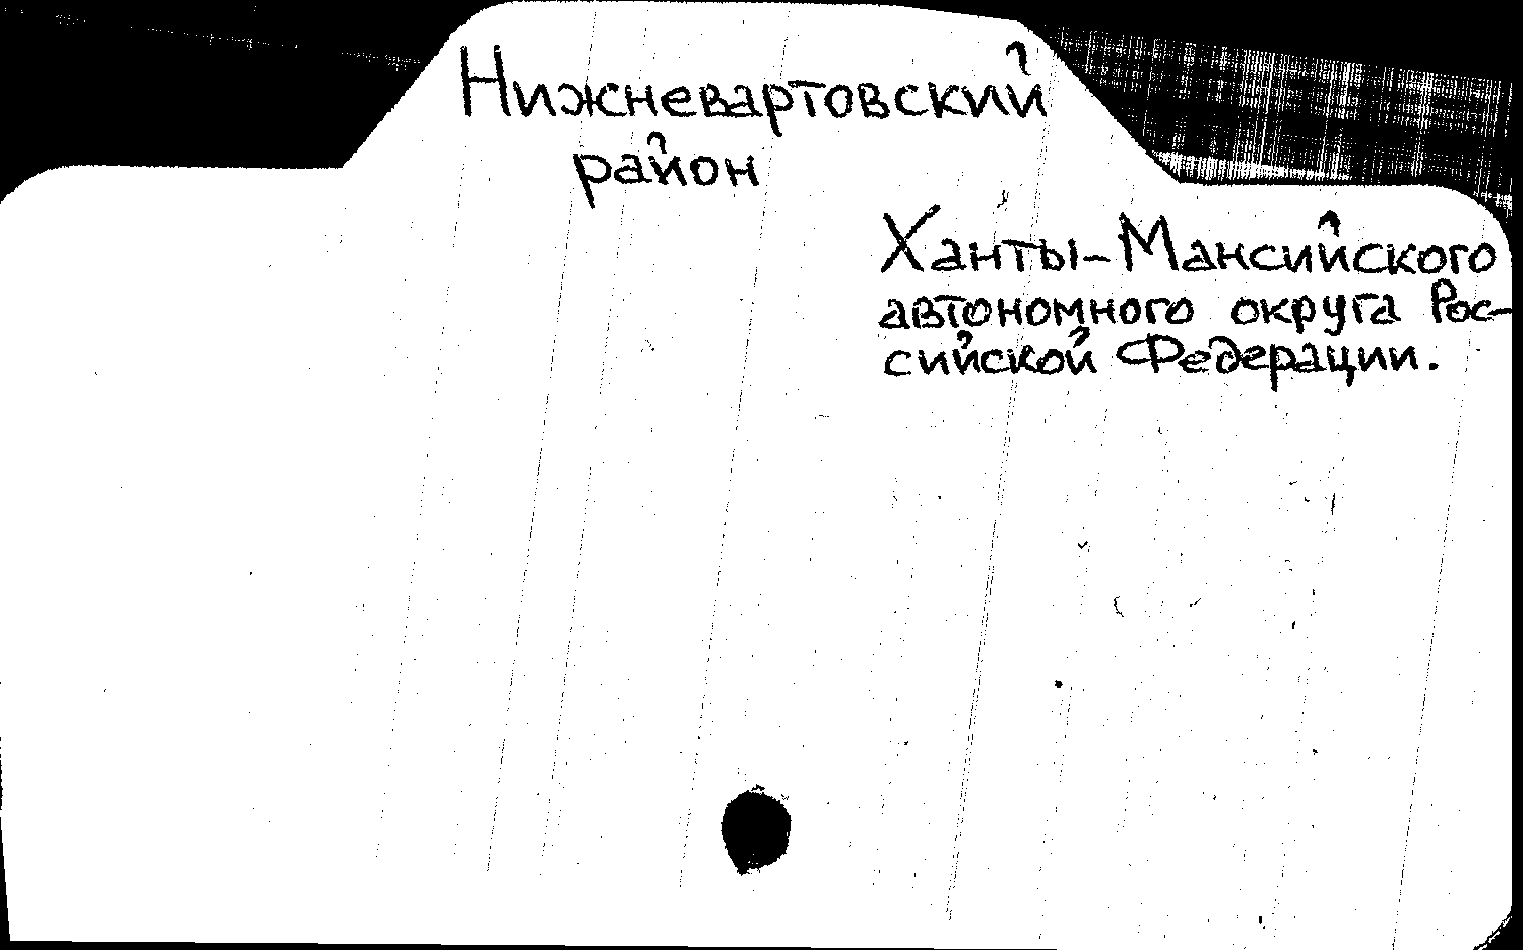 Нижневартовский
район
Ханты-Мансийского
автономного округа Рос-
сийской Федерации.